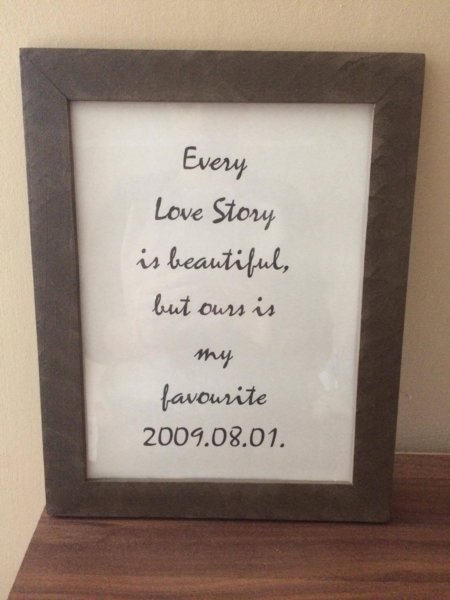 Every
Love Story
is beautiful,
but ours is
my
favourite
2009.08.01.